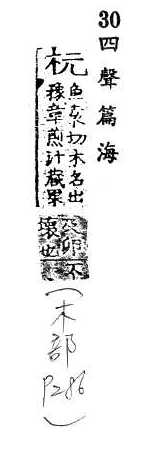 30四聲篇海
杬魚袁切木名出
豫章煎汁藏果
及卵不
壞也
(木部
P286)